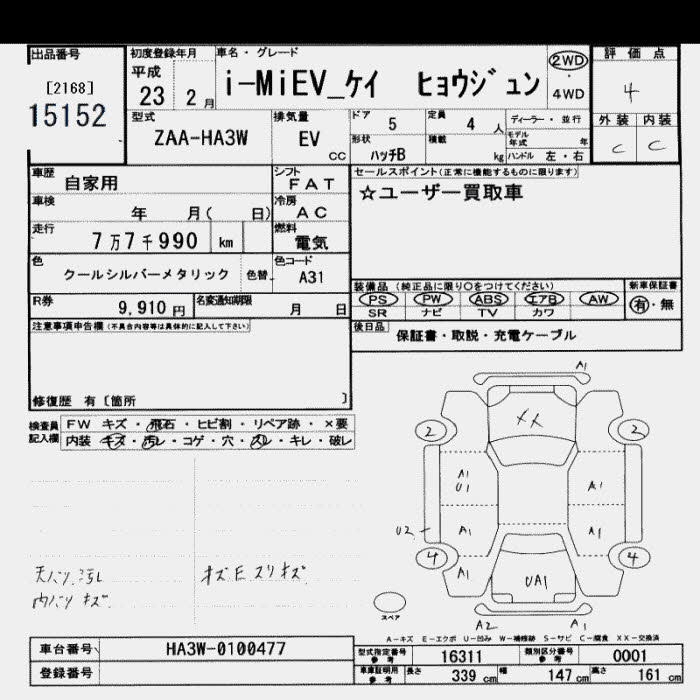 出品番号 初度登録年月 車名・グレード 2WD 評価点
[2168] 平成 i-MiEV_ケイ ヒョウジュン ・ 4
15152 23 2 月 4WD
型式 排気量 ドア 5 定員 4 人 ディーラー・並行 外装 内装
ZAA-HA3W EV CC 形状 ハッチB 積載 kg モデル年式 年 C C
ハンドル 左・右
車歴 自家用 シフト FAT セールスポイント(正常に機能するものに限ります)
車検 年 月( 日) 冷房 AC ☆ユーザー買取車
走行 7万7千990 km 燃料 電気
色 クールシルバーメタリック 色替 色コード A31
装備品 (純正品に限り○をつけてください) 新車保証書
PS PW ABS エアB AW 有・無
R券 9,910 円 名変通知期限 月 日 SR ナビ TV カワ
注意事項申告欄(不具合内容等は具体的に記入して下さい) 後日品 保証書・取説・充電ケーブル
修復歴 有〔箇所 〕
検査員記入欄 FW キズ・飛石・ヒビ割・リペア跡・×要
内装 キズ・汚レ・コゲ・穴・スレ・キレ・破レ
A1
XX
2 2
A1
U1 A1
U2 A1 A1
4 4
A1 UA1
天バリ汚レ
内バリキズ
スペア
A2 A1
A-キズ E-エクボ U-凹み W-補修跡 S-サビ C-腐食 XX-交換済
車台番号 HA3W-0100477 型式指定番号 参考 16311 類別区分番号 参考 0001
登録番号 車庫証明用 参考 長さ 339 cm 幅 147 cm 高さ 161 cm